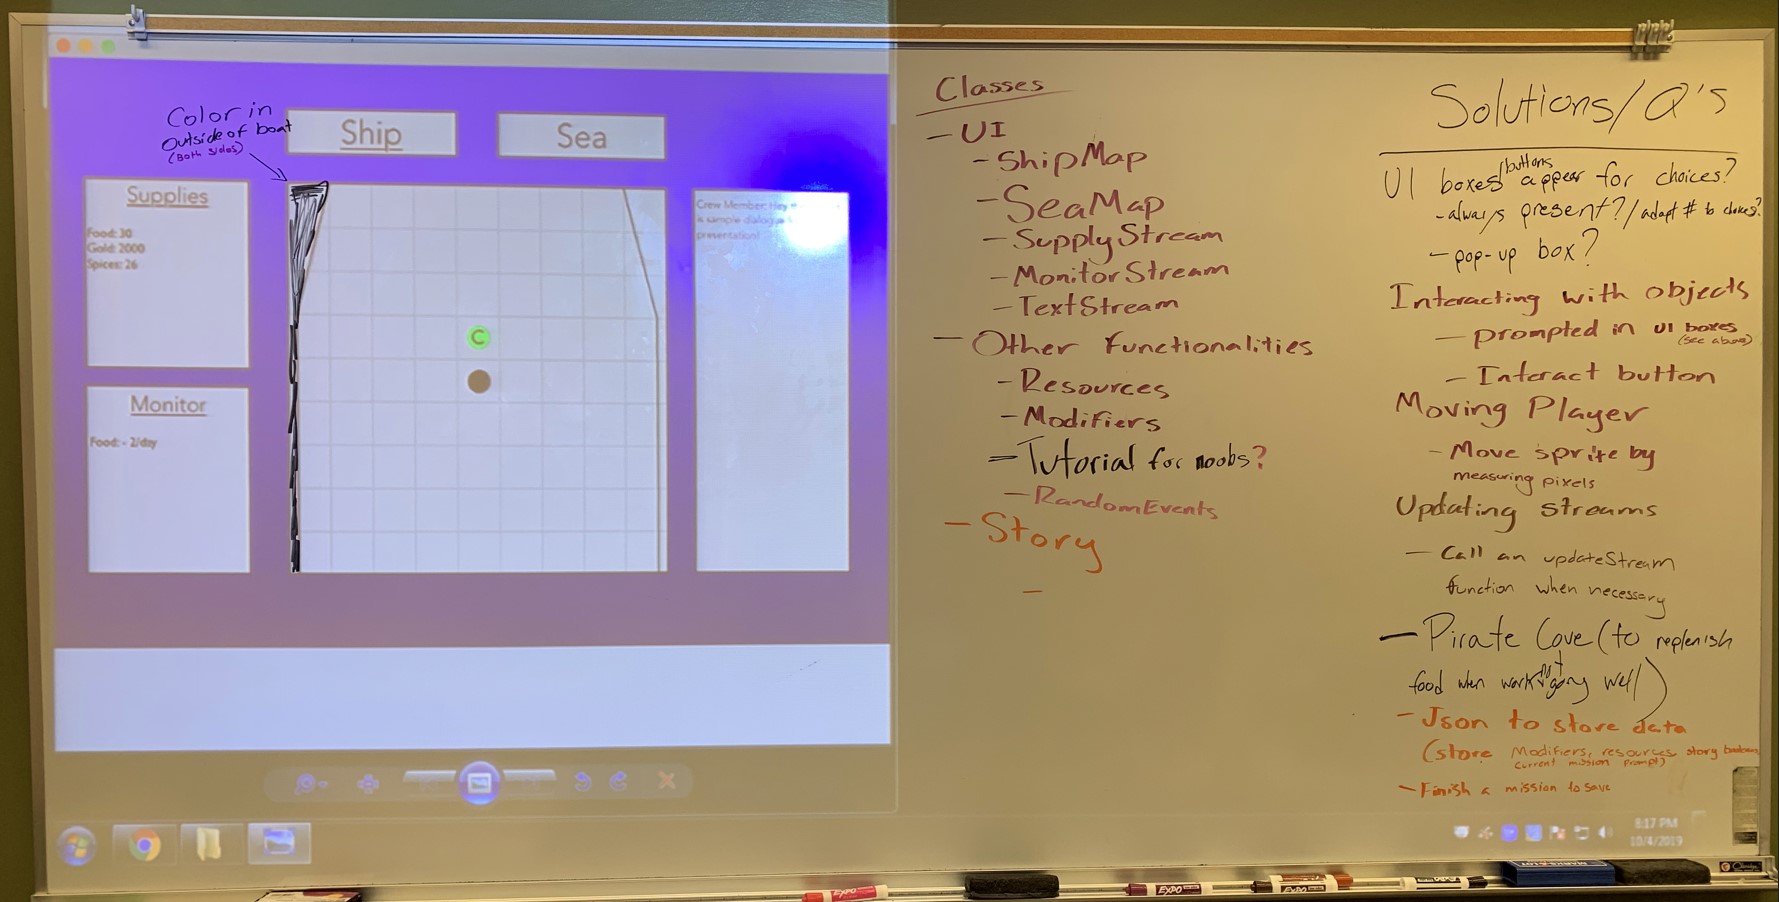 Color in
outside of boat
(Both sides)
Ship
Sea
Supplies
Food: 30
Gold: 2000
Spices: 26
Monitor
Food: - 2/day
C
Crew Member: Hey
is sample dialogue
presentation!
Classes
- UI
- ShipMap
- SeaMap
- SupplyStream
- MonitorStream
- TextStream
- Other Functionalities
- Resources
- Modifiers
- Tutorial for noobs?
- RandomEvents
- Story
-
Solutions/Q's
UI boxes/buttons appear for choices?
- always present?/adapt # to choices?
- pop-up box?
Interacting with objects
- prompted in UI boxes
(see above)
- Interact button
Moving Player
- Move sprite by
measuring pixels
Updating streams
- Call an updateStream
function when necessary
- Pirate Cove (to replenish
food when work not going well)
- Json to store data
(store Modifiers, resources, story booleans,
current mission prompt)
- Finish a mission to save
8:17 PM
10/4/2019
EXPO
EXPO
EXPO